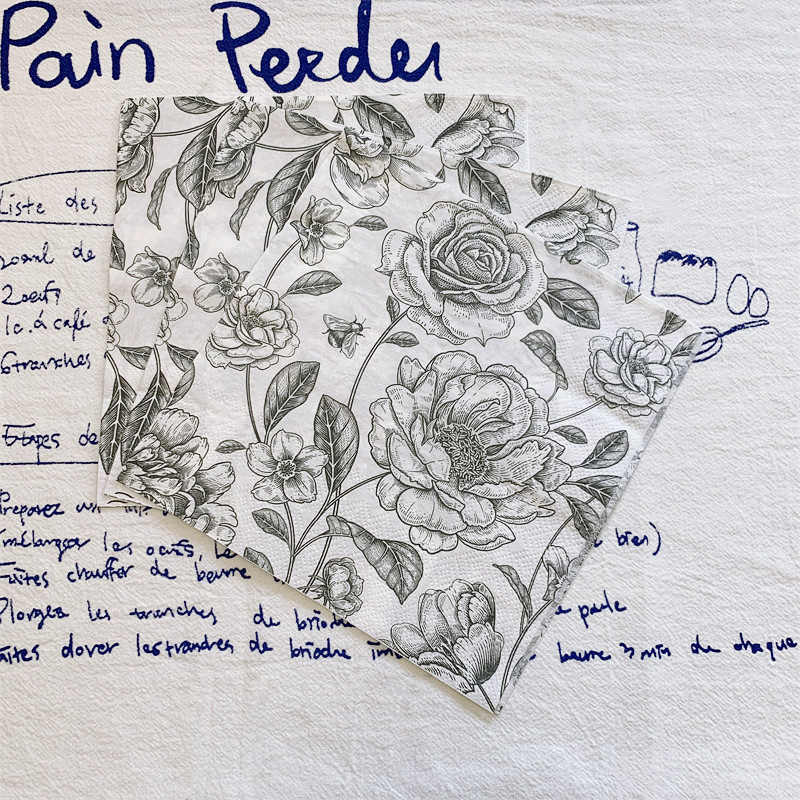 Pain Perdu
Liste des
200ml de
2 oeufs
1c. à café
6 tranches
Etapes de
Preparez un
mélanger les oeufs, le bien)
Faites chauffer de beurre
Plongez les tranches de brioche
aites dorer les tranches de brioche beurre 3 min de chaque